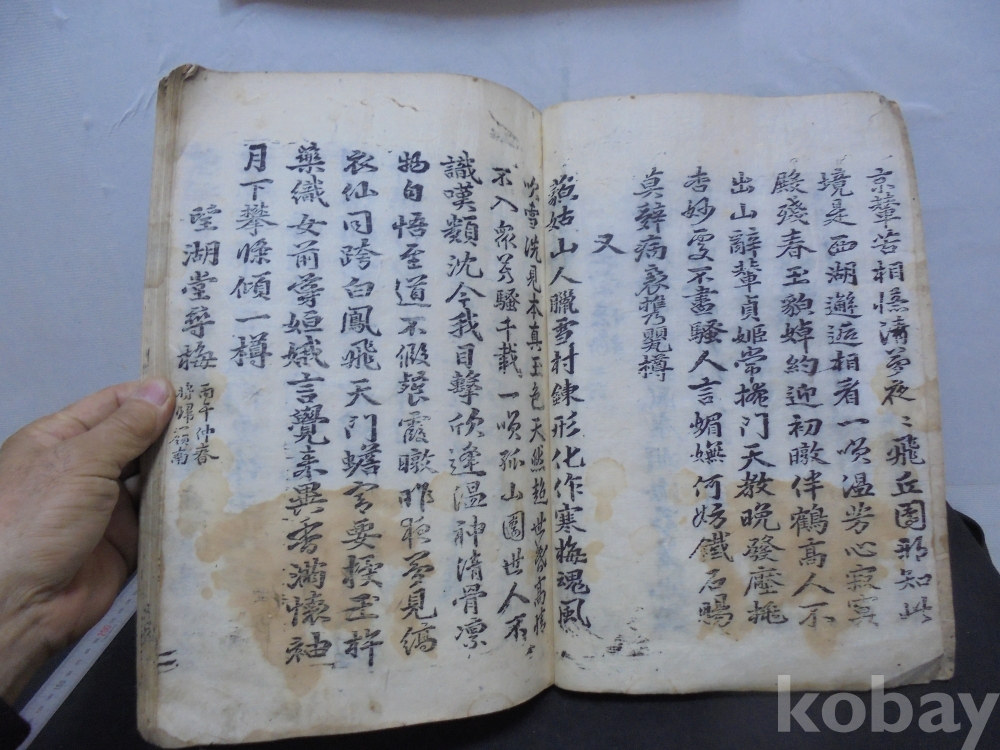 京輦苦相憶濟夢夜〻飛丘園那知此
境是西湖邂逅相看一笑温芳心寂寞
殿殘春玉貌婥約迎初暾伴鶴高人不
出山辭輦貞姬常掩門天教晩發壓桃
杏妙處不盡騷人言媚嫵何妨鐵石腸
莫辭病裏携罍樽
又
藐姑山人臘雪村鍊形化作寒梅魂風
吹雪洗見本真玉色天然超世昏高情
不入衆芳騷千載一笑孤山園世人不
識嘆類沈今我目擊欣逢温神清骨凛
物自悟至道不假餐霞暾昨夜夢見縞
衣仙同跨白鳳飛天門蟾宮要授玉杵
藥織女前導姮娥言覺來異香滿懷袖
月下攀條傾一樽
陞湖堂尋梅
丙午仲春
嶺南
kobay